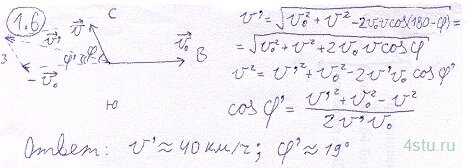 1.6
С
v⃗'
v⃗
v⃗₀
З
-φ'
φ
В
-v⃗₀
Ю
v' = √(v₀² + v² - 2v₀v cos(180 - φ)) =
= √(v₀² + v² + 2v₀v cos φ)
v² = v'² + v₀² - 2v'v₀ cos φ'
cos φ' = (v'² + v₀² - v²) / (2v'v₀)
Ответ: v' ≈ 40 км/ч; φ' ≈ 19°
4stu.ru